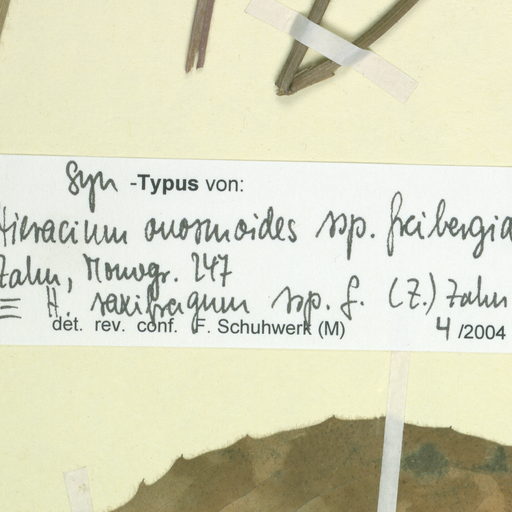 Syn -Typus von:
Hieracium onosmoides ssp. freibergia
Zahn, Monogr. 247
≡ H. saxifragum ssp. f. (Z.) Zahn
det. rev. conf. F. Schuhwerk (M) 4 /2004